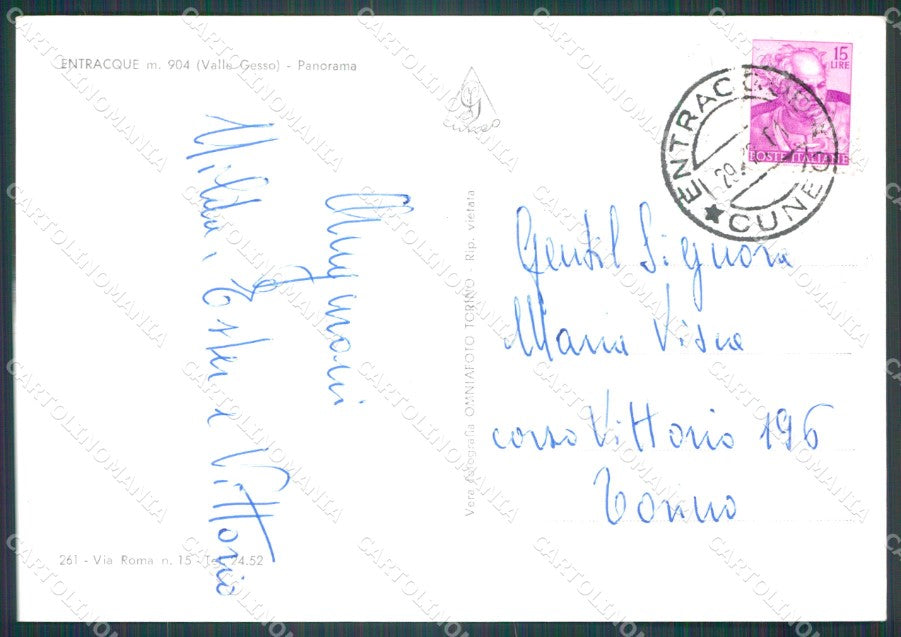 ENTRACQUE m. 904 (Valle Gesso) - Panorama
15
LIRE
POSTE ITALIANE
ENTRACQUE
CUNEO
Auguroni
Milda, Ester e Vittorio
Vera fotografia OMNIAFOTO TORINO - Rip. vietata
Gentil Signora
Maria Visca
corso Vittorio 196
Torino
261 - Via Roma n. 15 - Tel. 24.52
CARTOLINOMANIA